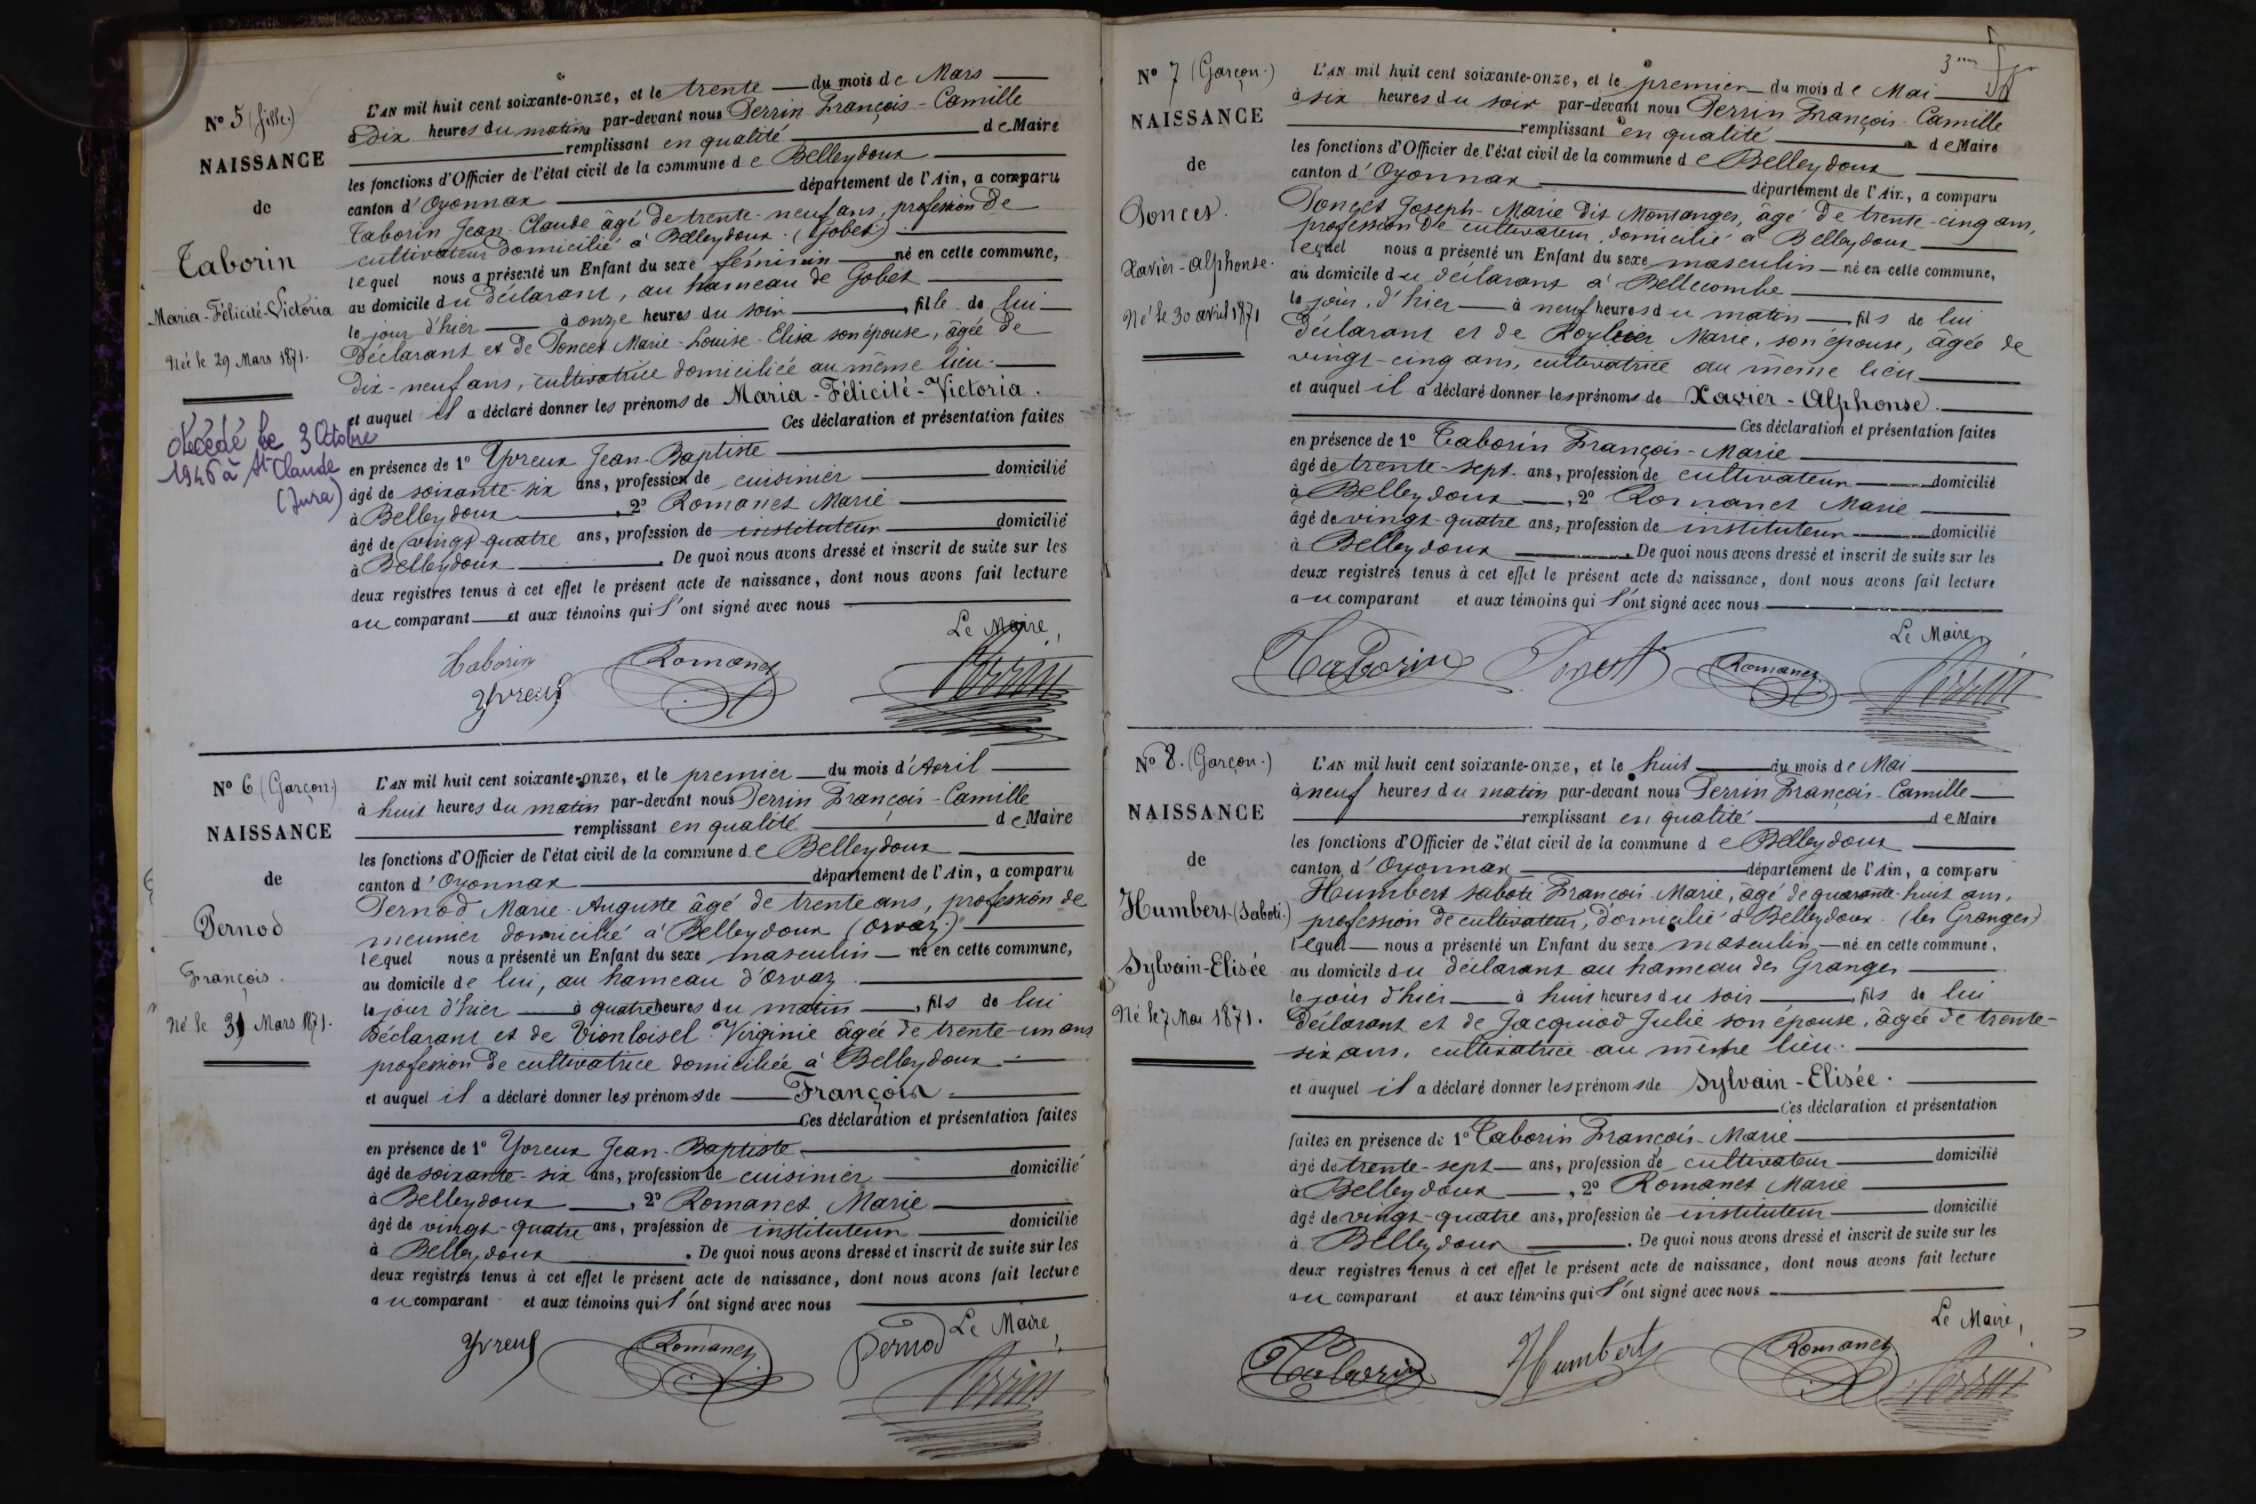 N° 5 (fille.)
NAISSANCE
de
Taborin
Maria-Félicité-Victoria
Née le 29 Mars 1871.
décédé le 3 Octobre
1946 à St Claude
(Jura)
L'AN mil huit cent soixante-onze, et le trente du mois de Mars
à Dix heures du matin par-devant nous Perrin François-Camille
remplissant en qualité de Maire
les fonctions d'Officier de l'état civil de la commune de Belleydoux
canton d'Oyonnax département de l'Ain, a comparu
Taborin Jean-Claude âgé de trente-neuf ans, profession de
cultivateur domicilié à Belleydoux. (Gobet)
lequel nous a présenté un Enfant du sexe féminin né en cette commune,
au domicile du déclarant, au hameau de Gobet
le jour d'hier à onze heures du soir, fille de lui
Déclarant et de Poncet Marie-Louise-Elisa son épouse, âgée de
Dix-neuf ans, cultivatrice domiciliée au même lieu.
et auquel il a déclaré donner les prénoms de Maria-Félicité-Victoria.
Ces déclaration et présentation faites
en présence de 1° Yvreux Jean-Baptiste
âgé de soixante-six ans, profession de cuisinier domicilié
à Belleydoux, 2° Romanet Marie
âgé de vingt-quatre ans, profession de instituteur domicilié
à Belleydoux. De quoi nous avons dressé et inscrit de suite sur les
deux registres tenus à cet effet le présent acte de naissance, dont nous avons fait lecture
au comparant et aux témoins qui l'ont signé avec nous
Le Maire,
Taborin Romanet Perrin
Yvreux
N° 6 (Garçon.)
NAISSANCE
de
Pernod
François.
Né le 31 Mars 1871.
L'AN mil huit cent soixante-onze, et le premier du mois d'Avril
à huit heures du matin par-devant nous Perrin François-Camille
remplissant en qualité de Maire
les fonctions d'Officier de l'état civil de la commune de Belleydoux
canton d'Oyonnax département de l'Ain, a comparu
Pernod Marie-Auguste âgé de trente ans, profession de
meunier domicilié à Belleydoux (Orvaz.)
lequel nous a présenté un Enfant du sexe masculin né en cette commune,
au domicile de lui, au hameau d'Orvaz
le jour d'hier à quatre heures du matin, fils de lui
Déclarant et de Vionloisel Virginie âgée de trente-un ans
profession de cultivatrice domiciliée à Belleydoux.
et auquel il a déclaré donner les prénoms de François.
Ces déclaration et présentation faites
en présence de 1° Yvreux Jean-Baptiste
âgé de soixante-six ans, profession de cuisinier domicilié
à Belleydoux, 2° Romanet Marie
âgé de vingt-quatre ans, profession de instituteur domicilié
à Belleydoux. De quoi nous avons dressé et inscrit de suite sur les
deux registres tenus à cet effet le présent acte de naissance, dont nous avons fait lecture
au comparant et aux témoins qui l'ont signé avec nous
Le Maire,
Yvreux Romanet Pernod Perrin
N° 7 (Garçon.)
NAISSANCE
de
Poncet.
Xavier-Alphonse.
Né le 30 avril 1871
L'AN mil huit cent soixante-onze, et le premier du mois de Mai
à six heures du soir par-devant nous Perrin François-Camille
remplissant en qualité de Maire
les fonctions d'Officier de l'état civil de la commune de Belleydoux
canton d'Oyonnax département de l'Ain, a comparu
Poncet Joseph-Marie dit Monsanges, âgé de trente-cinq ans,
profession de cultivateur, domicilié à Belleydoux
lequel nous a présenté un Enfant du sexe masculin né en cette commune,
au domicile du déclarant à Bellecombe
le jour d'hier à neuf heures du matin, fils de lui
Déclarant et de Marie, son épouse, âgée de
vingt-cinq ans, cultivatrice au même lieu
et auquel il a déclaré donner les prénoms de Xavier-Alphonse.
Ces déclaration et présentation faites
en présence de 1° Taborin François-Marie
âgé de trente-sept ans, profession de cultivateur domicilié
à Belleydoux, 2° Romanet Marie
âgé de vingt-quatre ans, profession de instituteur domicilié
à Belleydoux. De quoi nous avons dressé et inscrit de suite sur les
deux registres tenus à cet effet le présent acte de naissance, dont nous avons fait lecture
au comparant et aux témoins qui l'ont signé avec nous
Le Maire,
Taborin Poncet Romanet Perrin
N° 8. (Garçon.)
NAISSANCE
de
Humbert (Saboti.)
Sylvain-Elisée
Né le 7 Mai 1871.
L'AN mil huit cent soixante-onze, et le huit du mois de Mai
à neuf heures du matin par-devant nous Perrin François-Camille
remplissant en qualité de Maire
les fonctions d'Officier de l'état civil de la commune de Belleydoux
canton d'Oyonnax département de l'Ain, a comparu
Humbert Saboti François-Marie, âgé de quarante-huit ans,
profession de cultivateur, domicilié à Belleydoux. (les Granges)
lequel nous a présenté un Enfant du sexe masculin né en cette commune,
au domicile du déclarant au hameau des Granges
le jour d'hier à huit heures du soir, fils de lui
Déclarant et de Jacquiod Julie son épouse, âgée de trente-
six ans, cultivatrice au même lieu.
et auquel il a déclaré donner les prénoms de Sylvain-Elisée.
Ces déclaration et présentation
faites en présence de 1° Taborin François-Marie
âgé de trente-sept ans, profession de cultivateur domicilié
à Belleydoux, 2° Romanet Marie
âgé de vingt-quatre ans, profession de instituteur domicilié
à Belleydoux. De quoi nous avons dressé et inscrit de suite sur les
deux registres tenus à cet effet le présent acte de naissance, dont nous avons fait lecture
au comparant et aux témoins qui l'ont signé avec nous
Le Maire,
Taborin Humbert Romanet Perrin